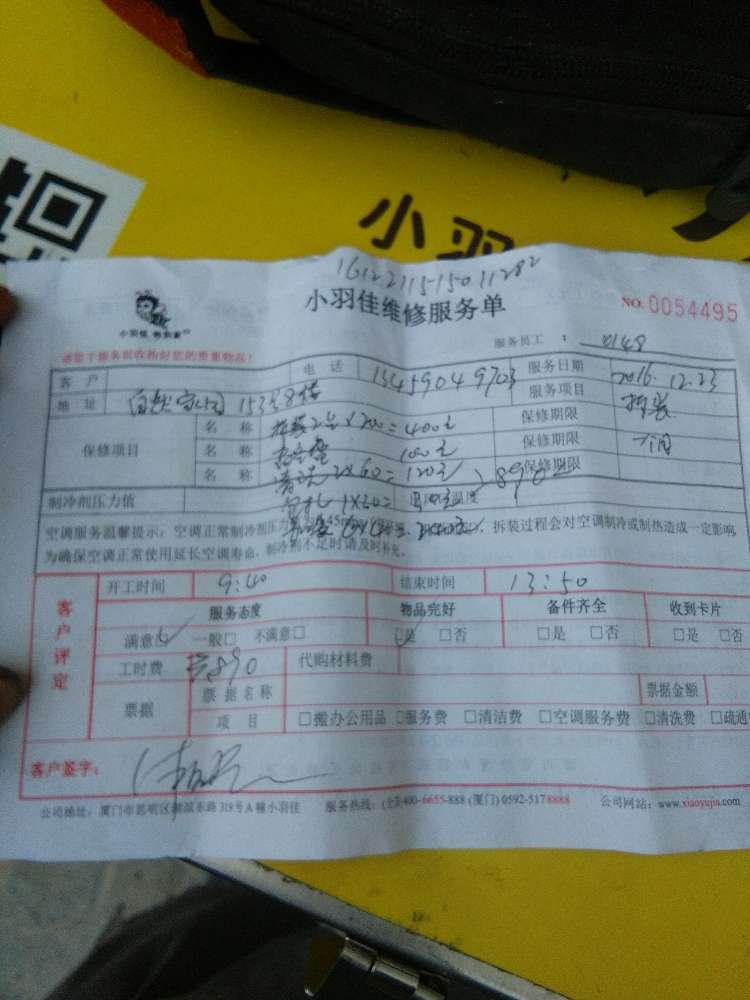 小羽
1612211515011282
小羽佳 教我家
小羽佳维修服务单
NO. 0054495
请您于服务前收拾好您的贵重物品!
服务员工 : 0148
客户 电话 13459049703 服务日期 2016.12.23
地址 服务项目 拆装
保修项目 名称 拆装2台×200=400元 保修期限
名称 100元 保修期限
名称 清洗2×60=120元 890 保修期限
制冷剂压力值 1×60=
空调服务温馨提示:空调正常制冷剂压力 拆装过程会对空调制冷或制热造成一定影响,
为确保空调正常使用延长空调寿命,制冷剂不足时请及时补充。
客户评定
开工时间 9:40 结束时间 13:50
服务态度 物品完好 备件齐全 收到卡片
满意☑ 一般□ 不满意□ ☑是 □否 □是 □否 □是 □否
工时费 890 代购材料费
票据 票据名称 票据金额
项目 □搬办公用品 □服务费 □清洁费 □空调服务费 □清洗费 □疏通
客户签字:
公司地址:厦门市思明区湖滨东路319号A幢小羽佳 服务热线:(全国)400-6655-888 (厦门) 0592-5178888 公司网站:www.xiaoyujia.com